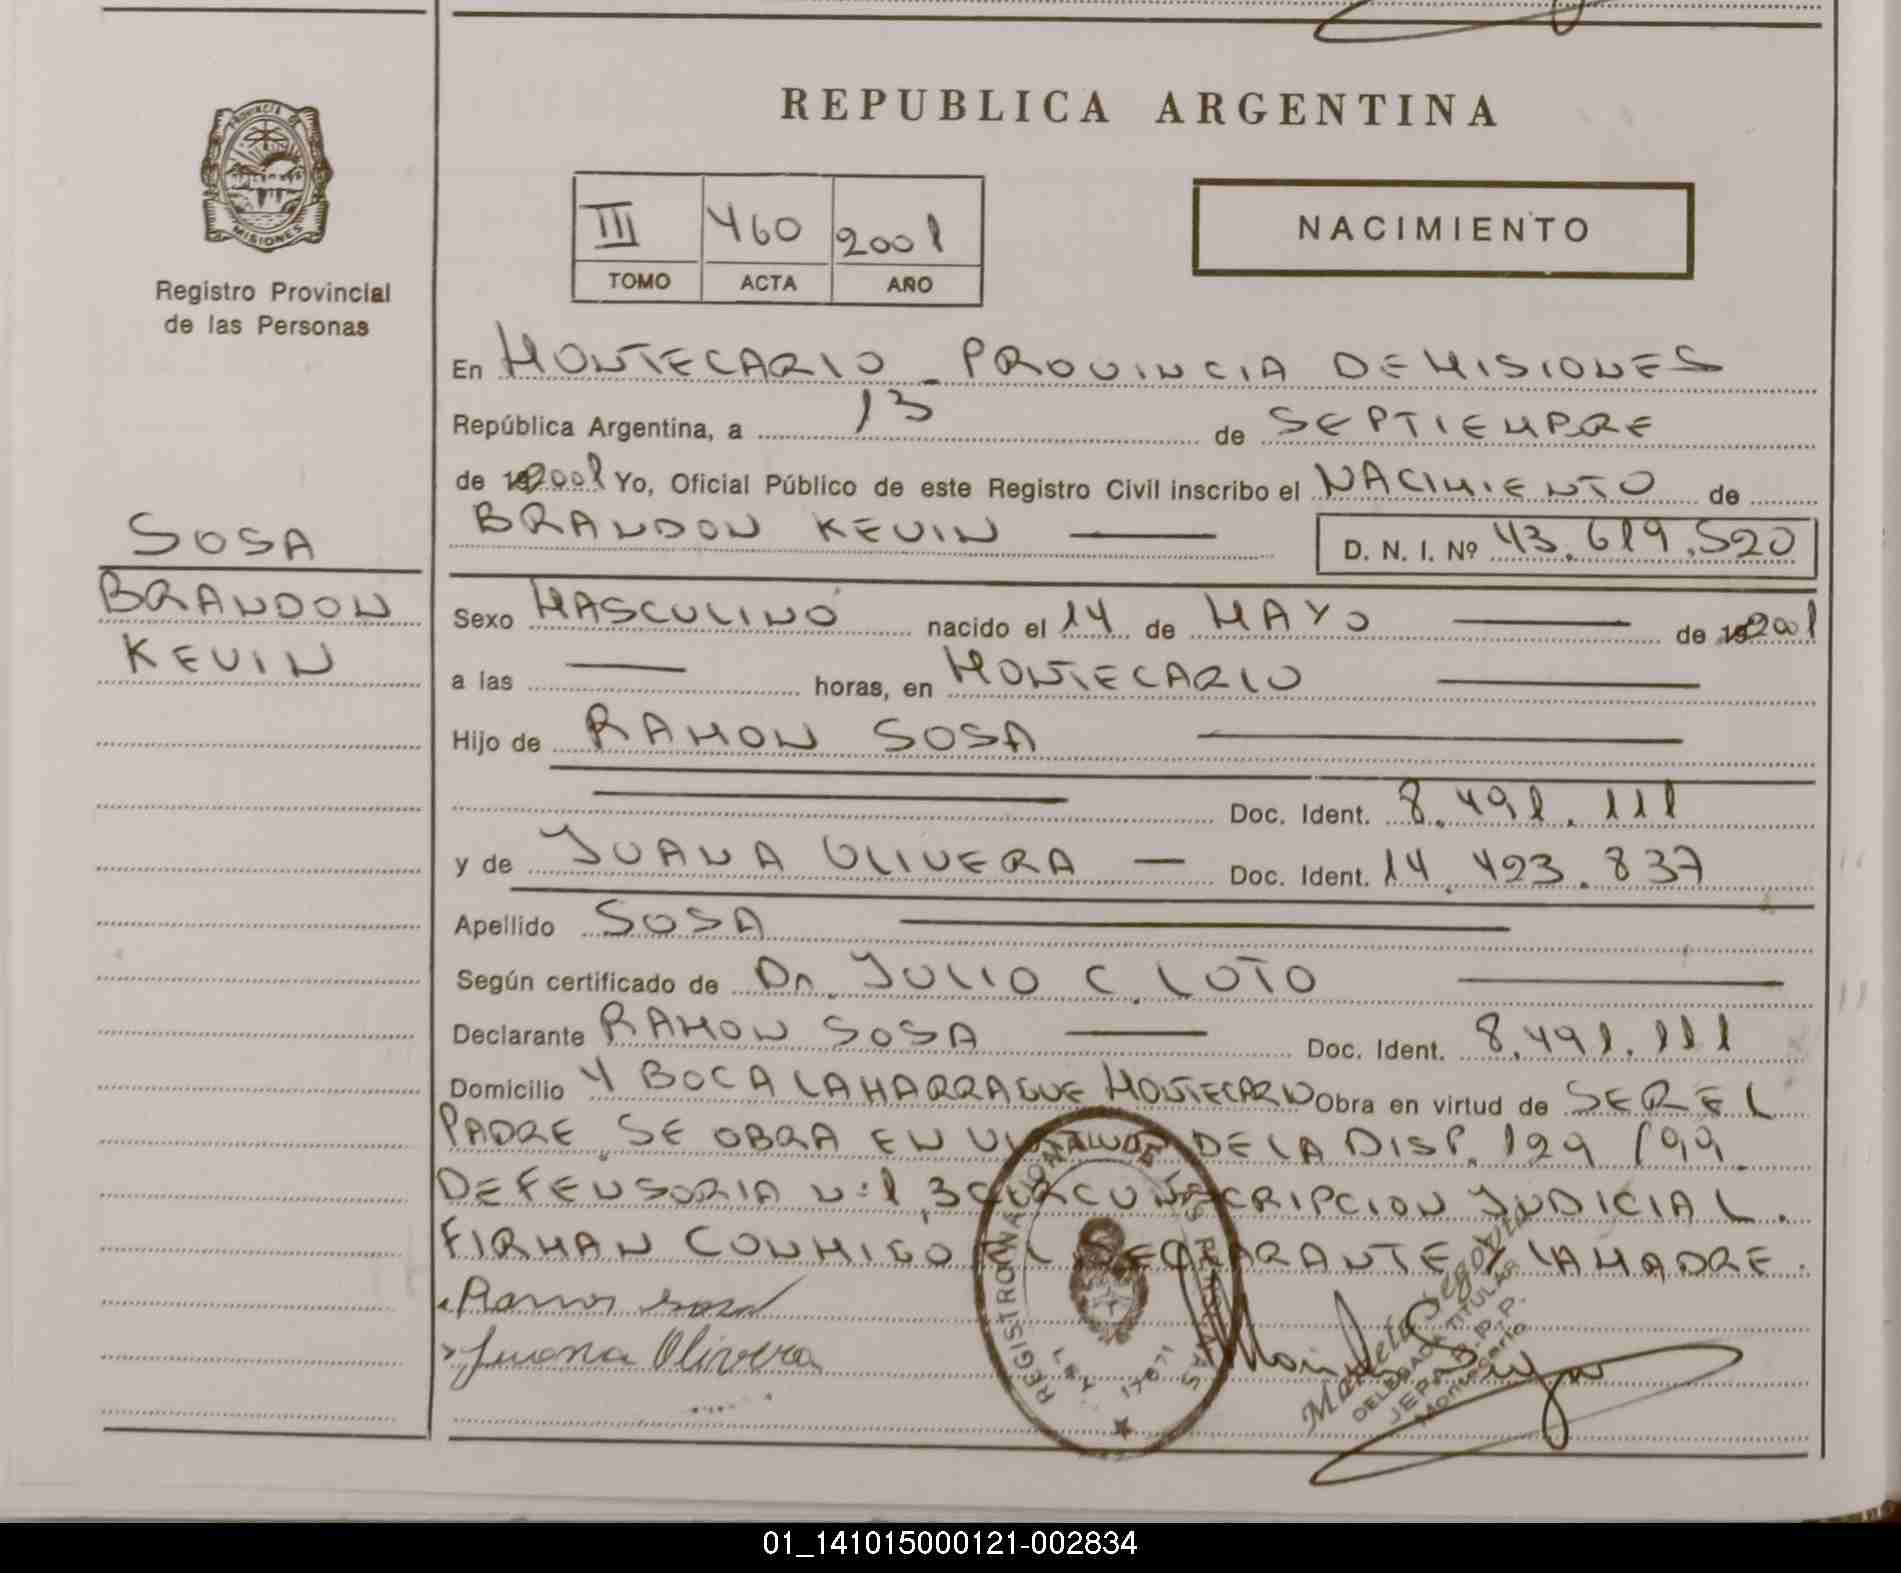 REPUBLICA ARGENTINA
PROVINCIA DE
MISIONES
Registro Provincial
de las Personas
III 460 2001
TOMO ACTA AÑO
NACIMIENTO
En MONTECARLO - PROVINCIA DE MISIONES
República Argentina, a 13 de SEPTIEMBRE
de 192001 Yo, Oficial Público de este Registro Civil inscribo el NACIMIENTO de
BRANDON KEVIN D. N. I. Nº 43.619.520
SOSA
BRANDON
KEVIN
Sexo MASCULINO nacido el 14 de MAYO de 192001
a las horas, en MONTECARLO
Hijo de RAMON SOSA
Doc. Ident. 8.491.111
y de JUANA OLIVERA Doc. Ident. 14.423.837
Apellido SOSA
Según certificado de Dr. JULIO C. LOTO
Declarante RAMON SOSA Doc. Ident. 8.491.111
Domicilio Y BOCA LAHARRAGUE MONTECARLO Obra en virtud de SER EL
PADRE. SE OBRA EN DE LA DISP. 129/99.
DEFENSORIA N:1, 3 CIRCUNSCRIPCION JUDICIAL.
FIRMAN CONMIGO EL DECLARANTE Y LA MADRE.
Ramon Sosa
Juana Olivera
REGISTRO NACIONAL DE LAS PERSONAS
LEY 17671
Marieta Segovia
DELEGADA TITULAR
Montecarlo
01_141015000121-002834